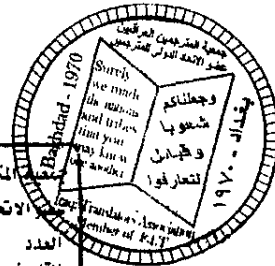 جمعية المترجمين العراقيين
عضو الاتحاد الدولي للمترجمين
Baghdad - 1970
Surely
we made
you nations
and tribes
that you
may know
one another
وجعلناكم
شعوبا
وقبائل
لتعارفوا
بغداد - ١٩٧٠
Iraqi Translators Association
Member of F.I.T
العدد